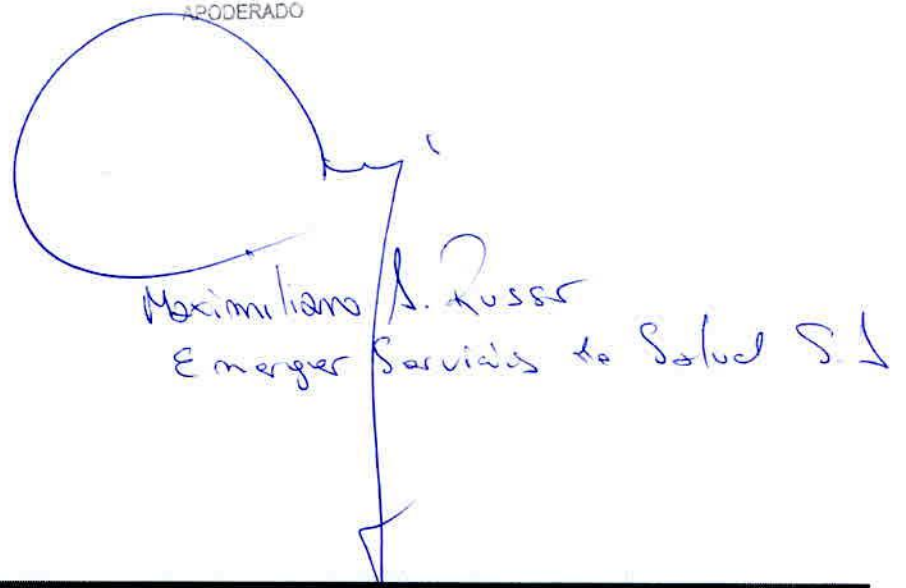 APODERADO
Maximiliano A. Russo
Emerger Servicios de Salud S.A